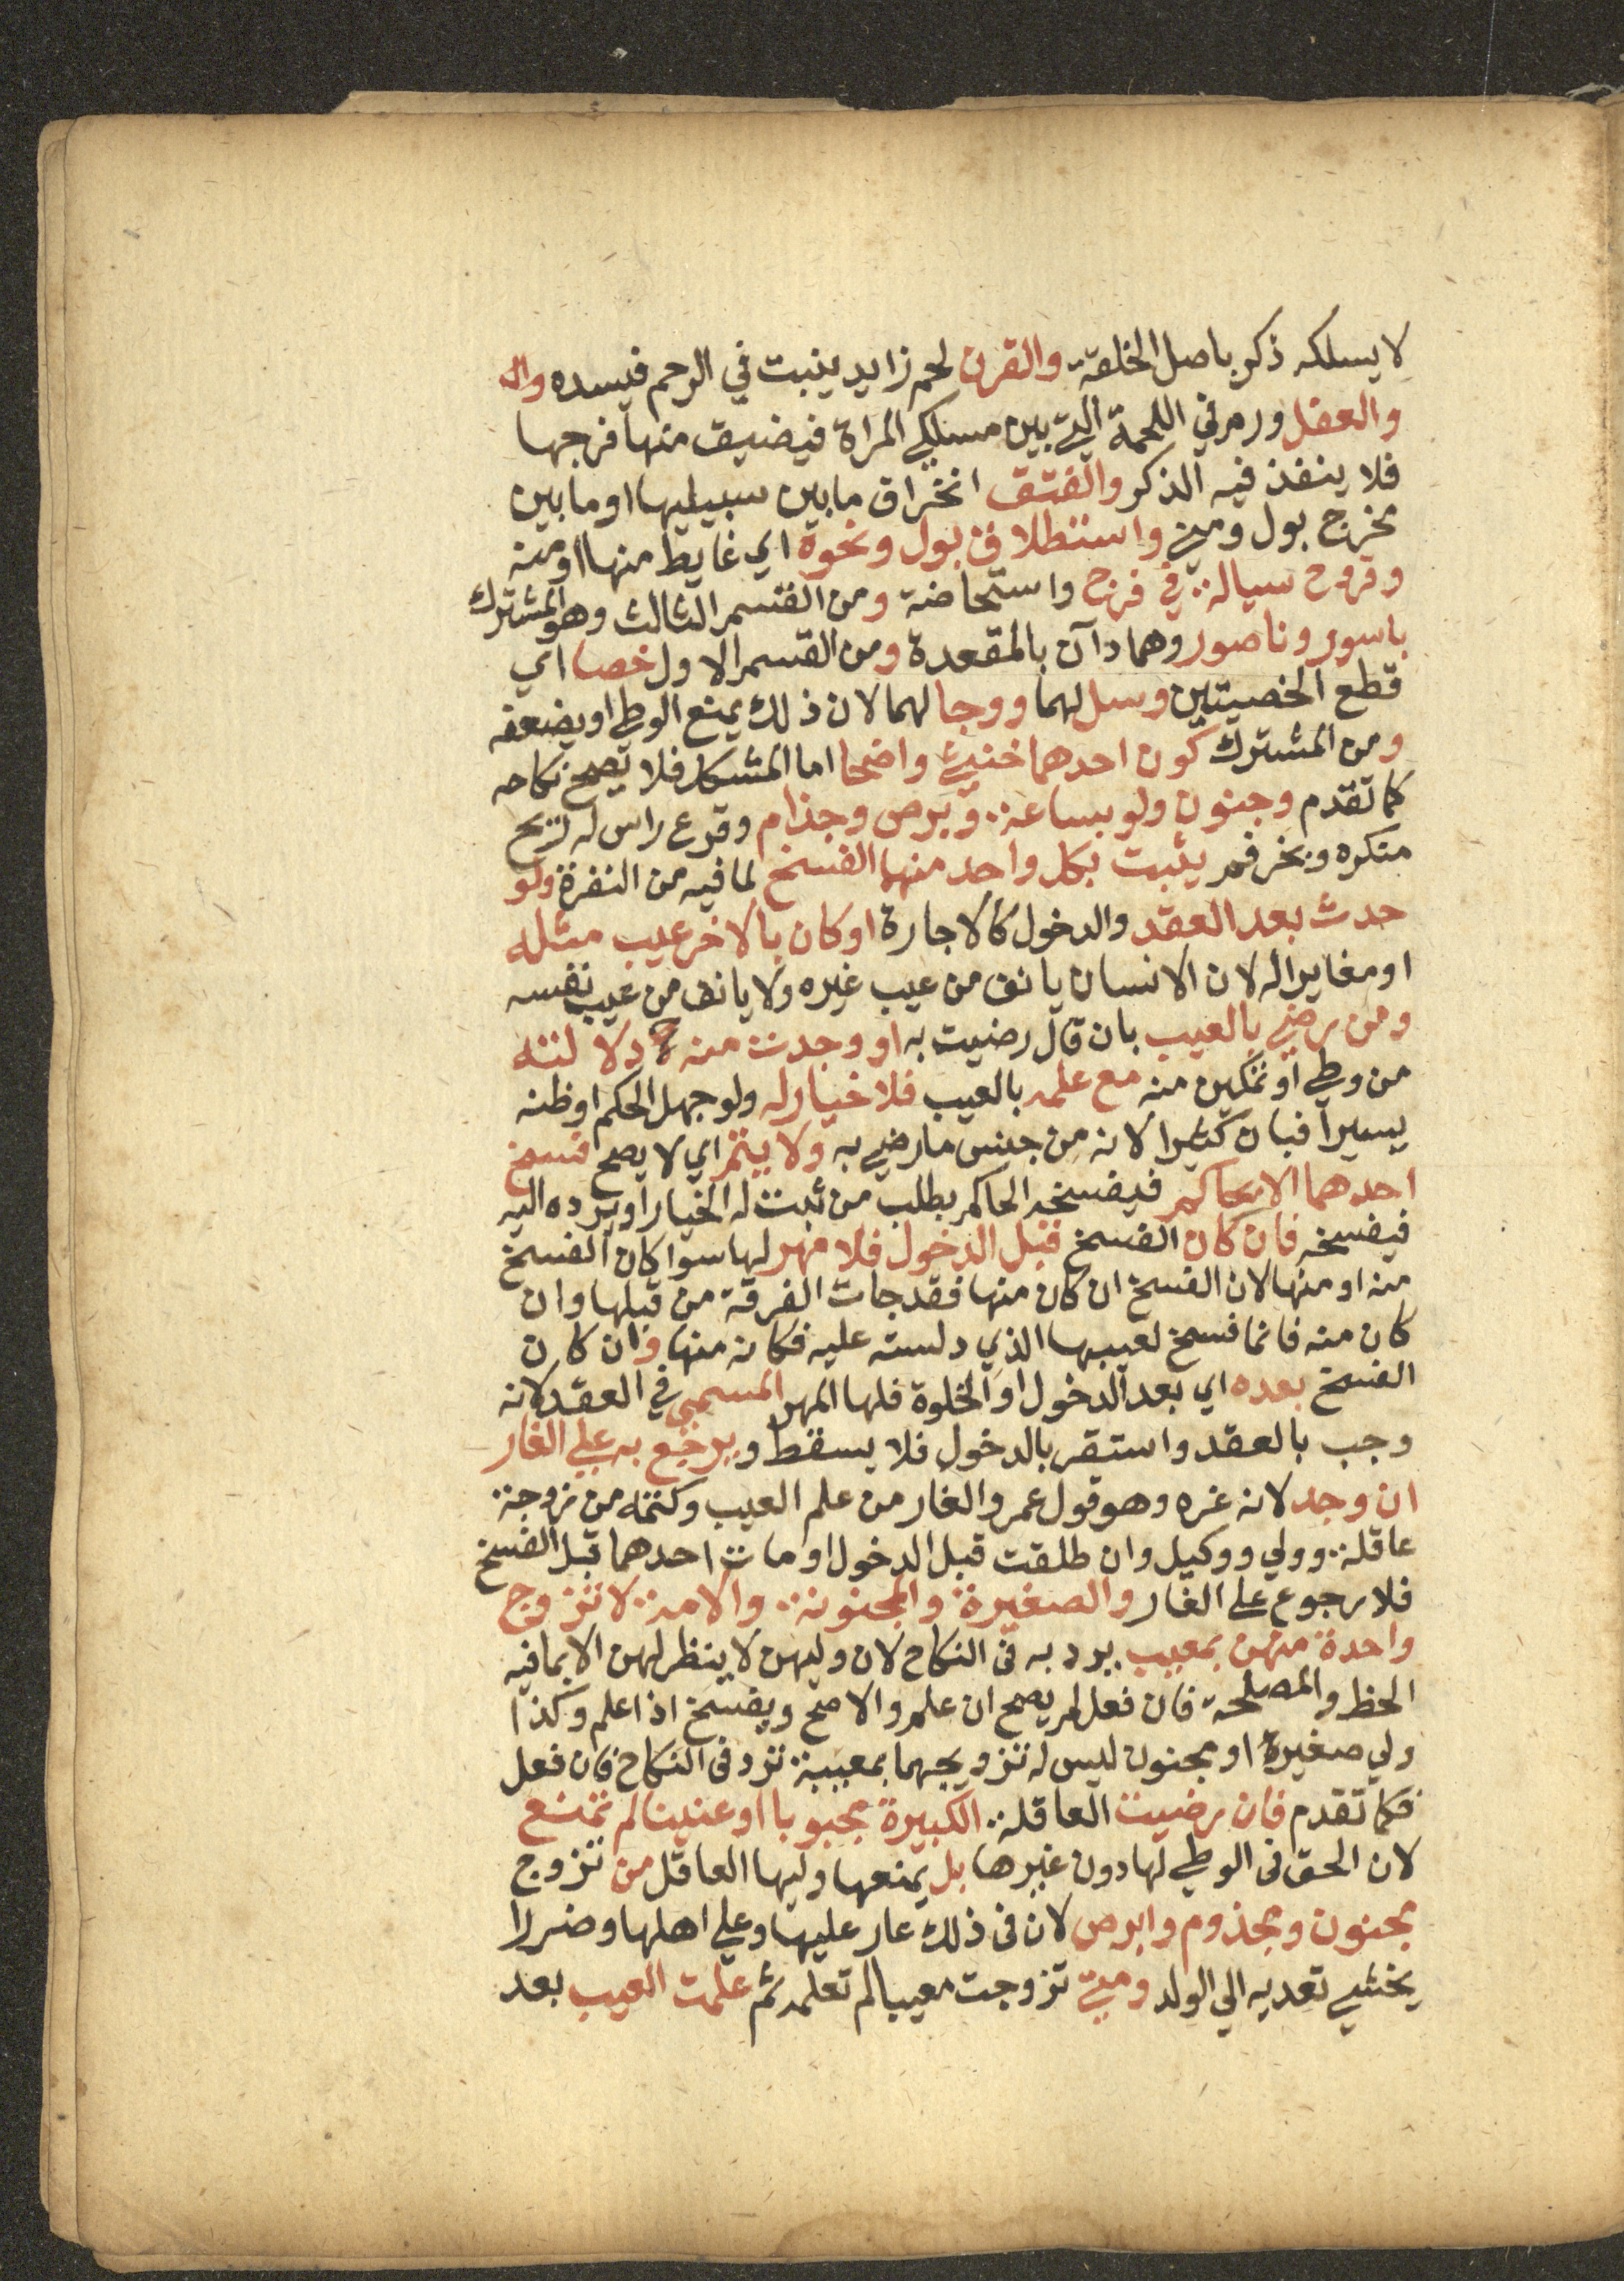 لا يسلكه ذكر باصل الخلقة والقرن لحم زايد ينبت في الرحم فيسده وال
والعفل ورم في اللحمة التي بين مسلكي المراة فيضيق منها فرجها
فلا ينفذ فيه الذكر والفتق انخراق ما بين سبيليها او ما بين
مخرج بول ومني واستطلاق بول ونحوه اي غايط منها او منه
وقروح سيالة في فرج واستحاضة ومن القسم الثالث وهو المشترك
باسور وناصور وهما دآآن بالمقعدة ومن القسم الاول خصا اي
قطع الخصيتين وسل لهما ووجا لهما لان ذلك يمنع الوطي او يضعفه
ومن المشترك كون احدهما خنثي واضحا اما المشكل فلا يصح نكاحه
كما تقدم وجنون ولو ساعة وبرص وجذام وقرع راس له ريح
منكره وبخر فم يثبت بكل واحد منها الفسخ لما فيه من النفرة ولو
حدث بعد العقد والدخول كالاجارة او كان بالاخر عيب مثله
او مغاير له لان الانسان يانف من عيب غيره ولا يانف من عيب نفسه
ومن رضي بالعيب بان قال رضيت به او وجدت منه دلالته
من وطي او تمكين منه مع علمه بالعيب فلا خيار له ولو جهل الحكم او ظنه
يسيرا فبان كثيرا لانه من جنس ما رضي به ولا يتم اي لا يصح فسخ
احدهما الا بحاكم فيفسخه الحاكم بطلب من ثبت له الخيار او يرده اليه
فيفسخه فان كان الفسخ قبل الدخول فلا مهر لها سوا كان الفسخ
منه او منها لان الفسخ ان كان منها فقد جات الفرقة من قبلها وان
كان منه فانما فسخ لعيبها الذي دلسته عليه فكانه منها وان كان
الفسخ بعده اي بعد الدخول او الخلوة فلها المهر المسمي في العقد لانه
وجب بالعقد واستقر بالدخول فلا يسقط ويرجع به علي الغار
ان وجد لانه غره وهو قول عمر والغار من علم العيب وكتمه من زوجة
عاقلة وولي ووكيل وان طلقت قبل الدخول او مات احدهما قبل الفسخ
فلا رجوع على الغار والصغيرة والمجنونة والامة لا تزوج
واحدة منهن بمعيب يرد به في النكاح لان وليهن لا ينظر لهن الا بما فيه
الحظ والمصلحة فان فعل لم يصح ان علم والا صح ويفسخ اذا علم وكذا
ولي صغيرة او مجنون ليس له تزويجهما بمعيبة ترد في النكاح فان فعل
فكما تقدم فان رضيت العاقلة الكبيرة مجبوبا او عنينا لم تمنع
لان الحق في الوطي لها دون غيرها بل يمنعها وليها العاقل من تزوج
مجنون ومجذوم وابرص لان في ذلك عار عليها وعلي اهلها وضررا
يخشي تعديه الي الولد ومتي تزوجت معيبا لم تعلمه ثم علمت العيب بعد